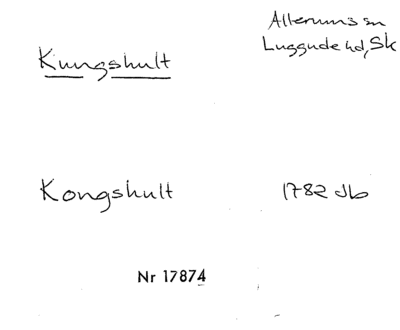 Allerums sn
Luggude hd, Sk
Kungshult
Kongshult
1782 Jb
Nr 17874